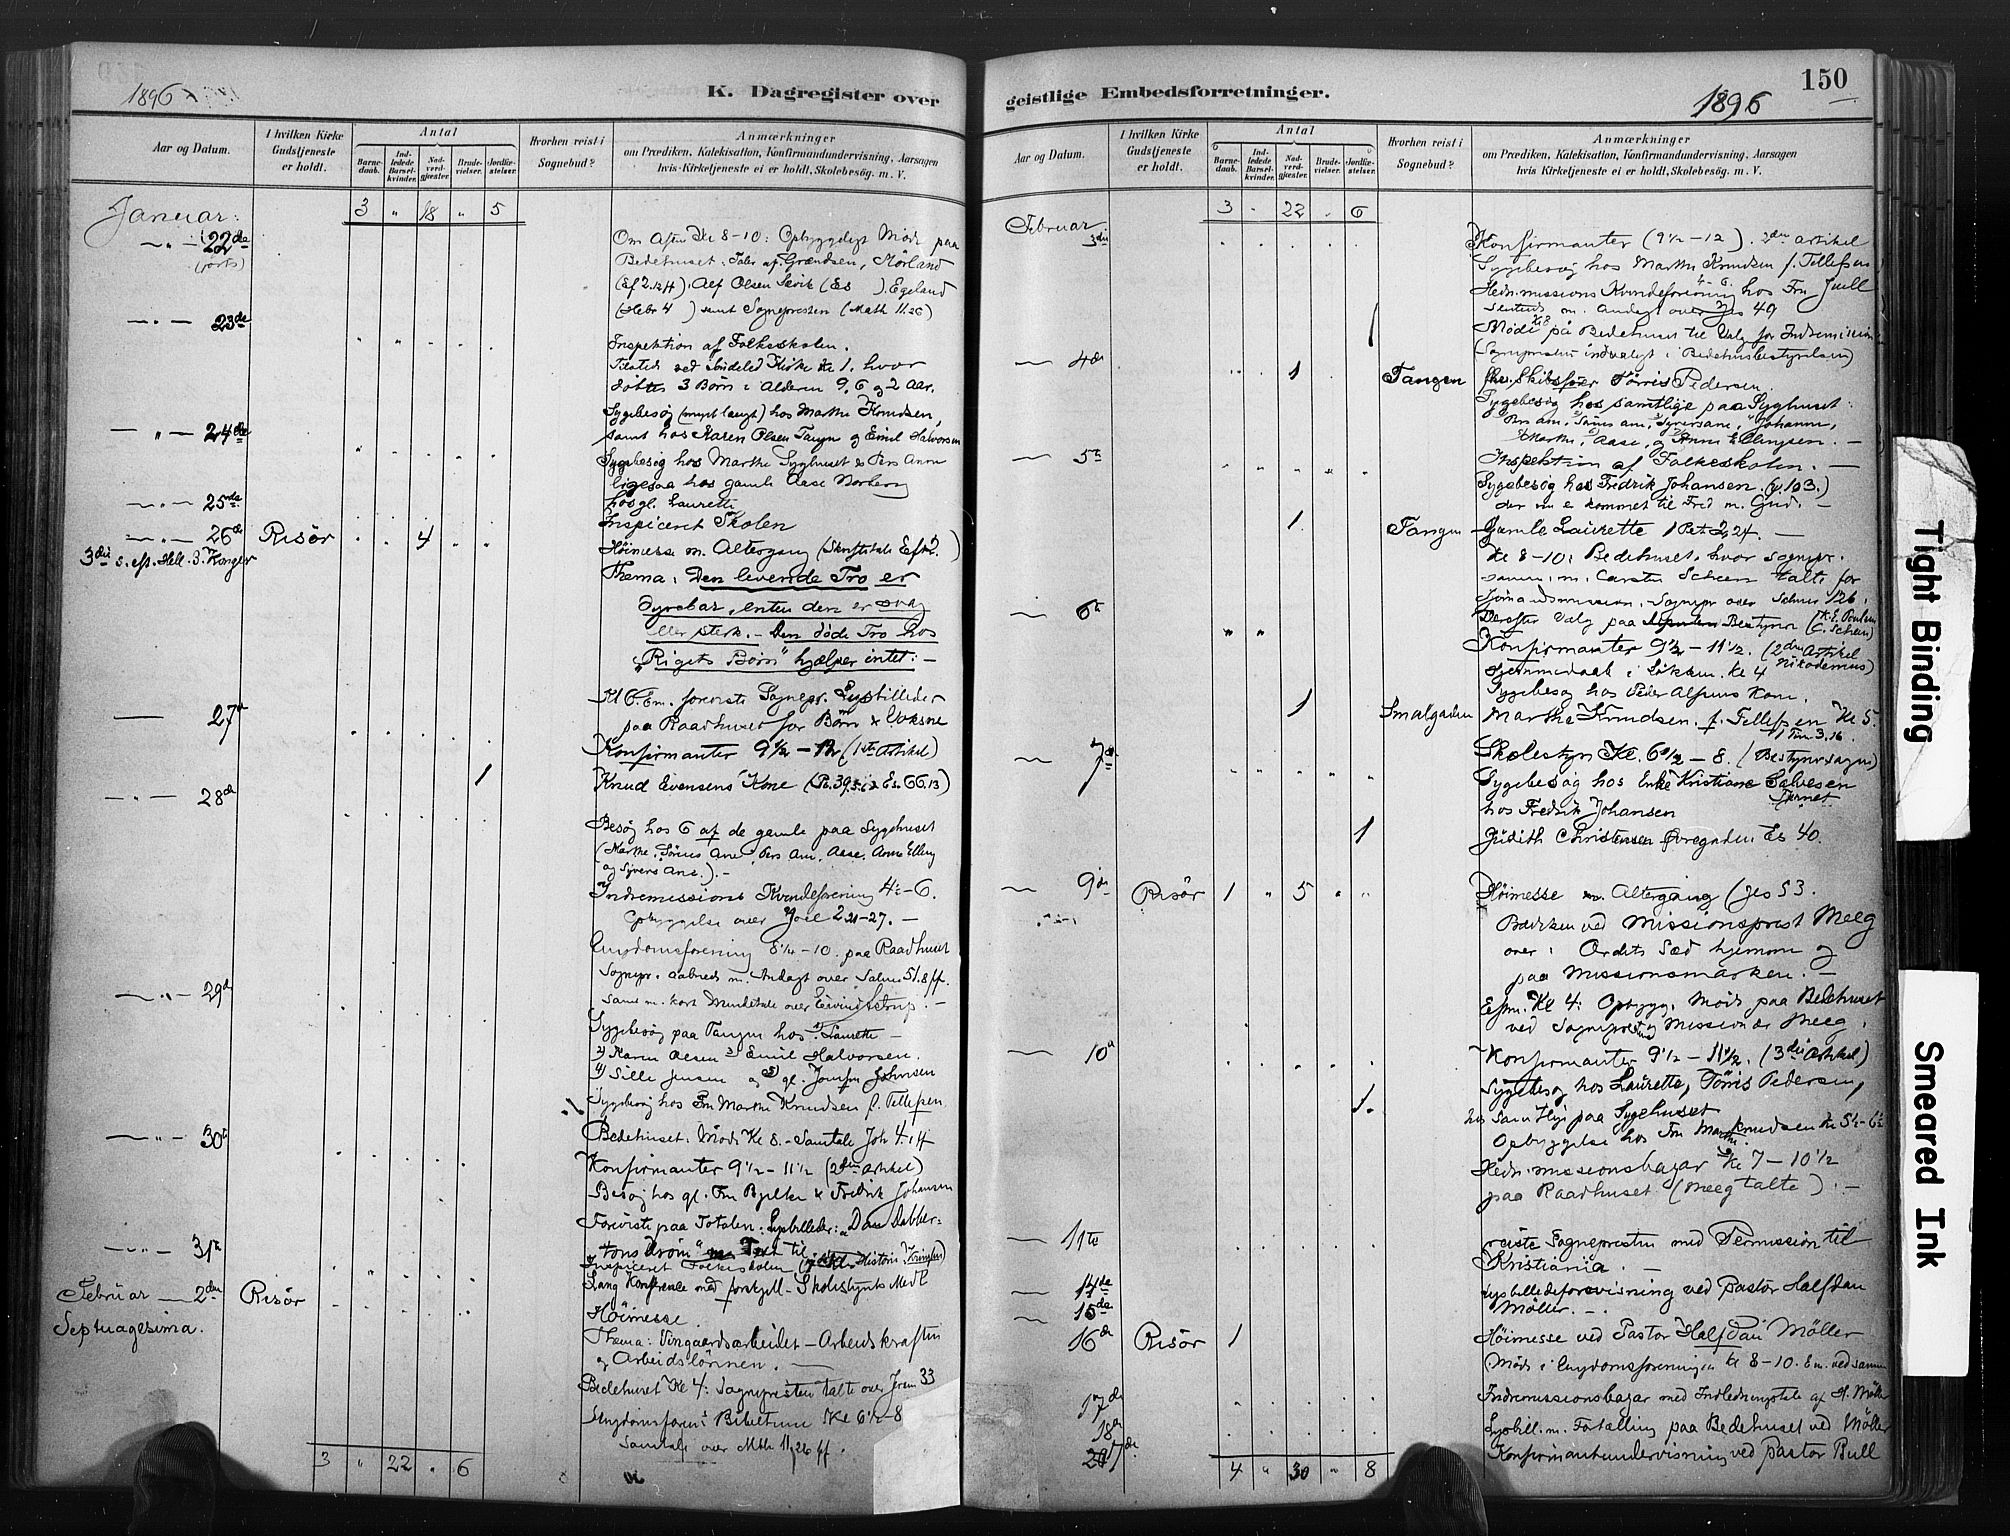 1896
K. Dagregister over
Aar og Datum.
I hvilken Kirke Gudstjeneste er holdt.
Antal
Barnedaab.
Indledede Barselkvinder.
Nadverdgjæster.
Brudevielser.
Jordfæstelser.
Hvorhen reist i Sognebud?
Anmærkninger
om Prædiken, Katekisation, Konfirmandundervisning, Aarsagen
hvis Kirketjeneste ei er holdt, Skolebesøg. m. V.
Januar:
3 " 18 " 5
22de
(forts)
Om Aften Kl 8-10: Opbyggeligt Møde paa
Bedehuset: Taler af Grændsen, Mørland
(Ef 2.1214). Alf Olsen Sævik (Es ). Egeland
(Hebr 4 ) samt Sognepresten (Math 11.26)
23de
Inspektion af Folkeskolen.
Tilsted ved Kirke Kl 1. hvor
døbtes 3 Børn i Alderen 9, 6 og 2 Aar.
Sygebesøg (meget langt) hos Marthe Knudsen,
24de
samt hos Karen Olsen Tangen og Emil Halvorsen
Sygebesøg hos Marthe Syghuset & Pers Anne
ligesaa hos gamle Aase Norberg
25de
hos gl. Laurette
Inspiceret Skolen
26de Risør 4
3die S. eft. Hell. 3 Konger
Høimesse m. Altergang (Skriftetale Esr ?. )
Thema: Den levende Tro er
dyrebar, enten den er svag
eller sterk. - Den døde Tro hos
"Rigets Børn" hjælper intet: -
Kl 6. Em. foreviste Sognepr. Lysbilleder
27de
paa Raadhuset for Børn & Voksne
Konfirmanter 9½ - 12 (1ste Artikel)
1
Knud Evensens Kone (Ps. 39,5.6 & Es. 66.13)
28de
Besøg hos 6 af de gamle paa Sygehuset
(Marthe, Sørens Ane, Pers Ane, Aase, Anne Elling
og Syvers Ane.). -
Indremissions Kvindeforening 4½-6.
Opbyggelse over Joel 2 21-27. -
Ungdomsforening 8½-10. paa Raadhuset
Sognepr. aabnede m. Andagt over Salme 51.8 ff.
29de
samt m. kort Mindetale over Eivindstrup. -
Sygebesøg paa Tangen hos 1) Laurette -
2) Karen Olsen 3) Emil Halvorsen.
4) Sille Jensen og 5) gl. Jomfru Johnsen
Sygebesøg hos Fru Marthe Knudsen f. Tellefsen
30te
Bedehuset: Møde Kl 8. - Samtale Joh 4.14
Konfirmanter 9½ - 11½ (2den Artikel)
Besøg hos gl. Fru Bjelke & Fredrik Johansen
Foreviste paa Totalen. Lysbilleder: "Dan Dabber=
31te
tons drøm"
Inspiceret Folkeskolen
Lang Konferense med forskjell. Skolestyrets Medl
Februar 2den Risør
Høimesse.
Septuagesima.
Thema: Vingaardsarbeidet - Arbeidskraften
og Arbeidslønnen.
Bedehuset Kl 4: Sognepresten talte over Jerem 33
Ungdomsforen: Bibeltime Kl 6½-8
Samtale over Mth 11,26 ff.
3 " 22 " 6
150
geistlige Embedsforretninger.
1896
Aar og Datum.
I hvilken Kirke Gudstjeneste er holdt.
Antal
Barnedaab.
Indledede Barselkvinder.
Nadverdgjæster.
Brudevielser.
Jordfæstelser.
Hvorhen reist i Sognebud?
Anmærkninger
om Prædiken, Katekisation, Konfirmandundervisning, Aarsagen
hvis Kirketjeneste ei er holdt, Skolebesøg. m. V.
Februar
3 - 22 . 6
3die
Konfirmanter (9½-12). 2den Artikel
Sygebesøg hos Marthe Knudsen f. Tellefsen
Hedn. missions Kvindeforening 4-6. hos Fru Juell
m. Andagt over Jes 49
Møde Kl 8 på Bedehuset til Valg for Indremission
(Sognepresten indvalgt i Bedehusbestyrelsen)
4de 1 Tangen
fhv. Skibsfører Tørris Pedersen.
Sygebesøg hos samtlige paa Syghuset:
Pers ane, Sørens ane, Syversane, Johanne,
Marthe, Aase, og Anne Ellingsen. -
5te
Inspektion af Folkeskolen. -
Sygebesøg hos Fredrik Johansen. (y. 103.)
der nu e kommet til Fred m. Gud. -
1 Tangen
Gamle Laurette 1 Pet 2,24. -
Kl 8-10: Bedehuset, hvor sognepr.
samm. m. Carsten Scheen talte for
Sømandsmission. Sognepr over Salme 126.
6te
Derefter Valg paa Bestyrer (K.E. Poulsen C. Scheen)
Konfirmanter 9½ - 11½. (2den Artikel Nikodemus)
Hjemmedaab i Løkken. Kl 4
Sygebesøg hos Peder Alfsens Kone.
1 Smalgaden
Marthe Knudsen. f. Tellefsen Kl 5.
1 Tim 3.16.
7de
Skolestyr Kl. 6½ - 8. (Bestyrersagen)
Sygebesøg hos Enke Kristiane Salvesen
Tjernet
hos Fredrik Johansen
1
Judith Christensen Øvregaden Es 40.
9de Risør 1 " 5 " "
Høimesse m. Altergang (Jes 53.
Prædiken ved Missionsprest Meeg
over: Ordets Sæd hjemme og
paa Missionsmarken. -
Eftm. Kl 4: Opbygg. Møde paa Bedehuset
ved Sognepresten og Missionær Meeg.
10de
Konfirmanter 9½ - 11½. (3die Artikel)
Sygebesøg hos Laurette, Tørris Pedersen,
1.
hos Samtlige paa Sygehuset
Opbyggelse hos Fru Marthe Knudsen Kl 5½-6½
Hedn. missionsbazar Kl 7 - 10½
paa Raadhuset (Meeg talte). -
11te
reiste Sognepresten med Permission til
Kristiania. -
14de
Lysbilledeforevisning ved Pastor Halfdan
15de
Møller. -
16de Risör 1
Høimesse ved Pastor Halfdan Møller
Møde i Ungdomsforeningen Kl 8-10. Em. ved samme
17de
Indremissionsbazar med Indledningstale af H. Møller
18de
Lysbill. m. Fortælling paa Bedehuset ved Møller
Konfirmantundervisning ved pastor Bull
4 " 30 " 8
Tight Binding
Smeared Ink